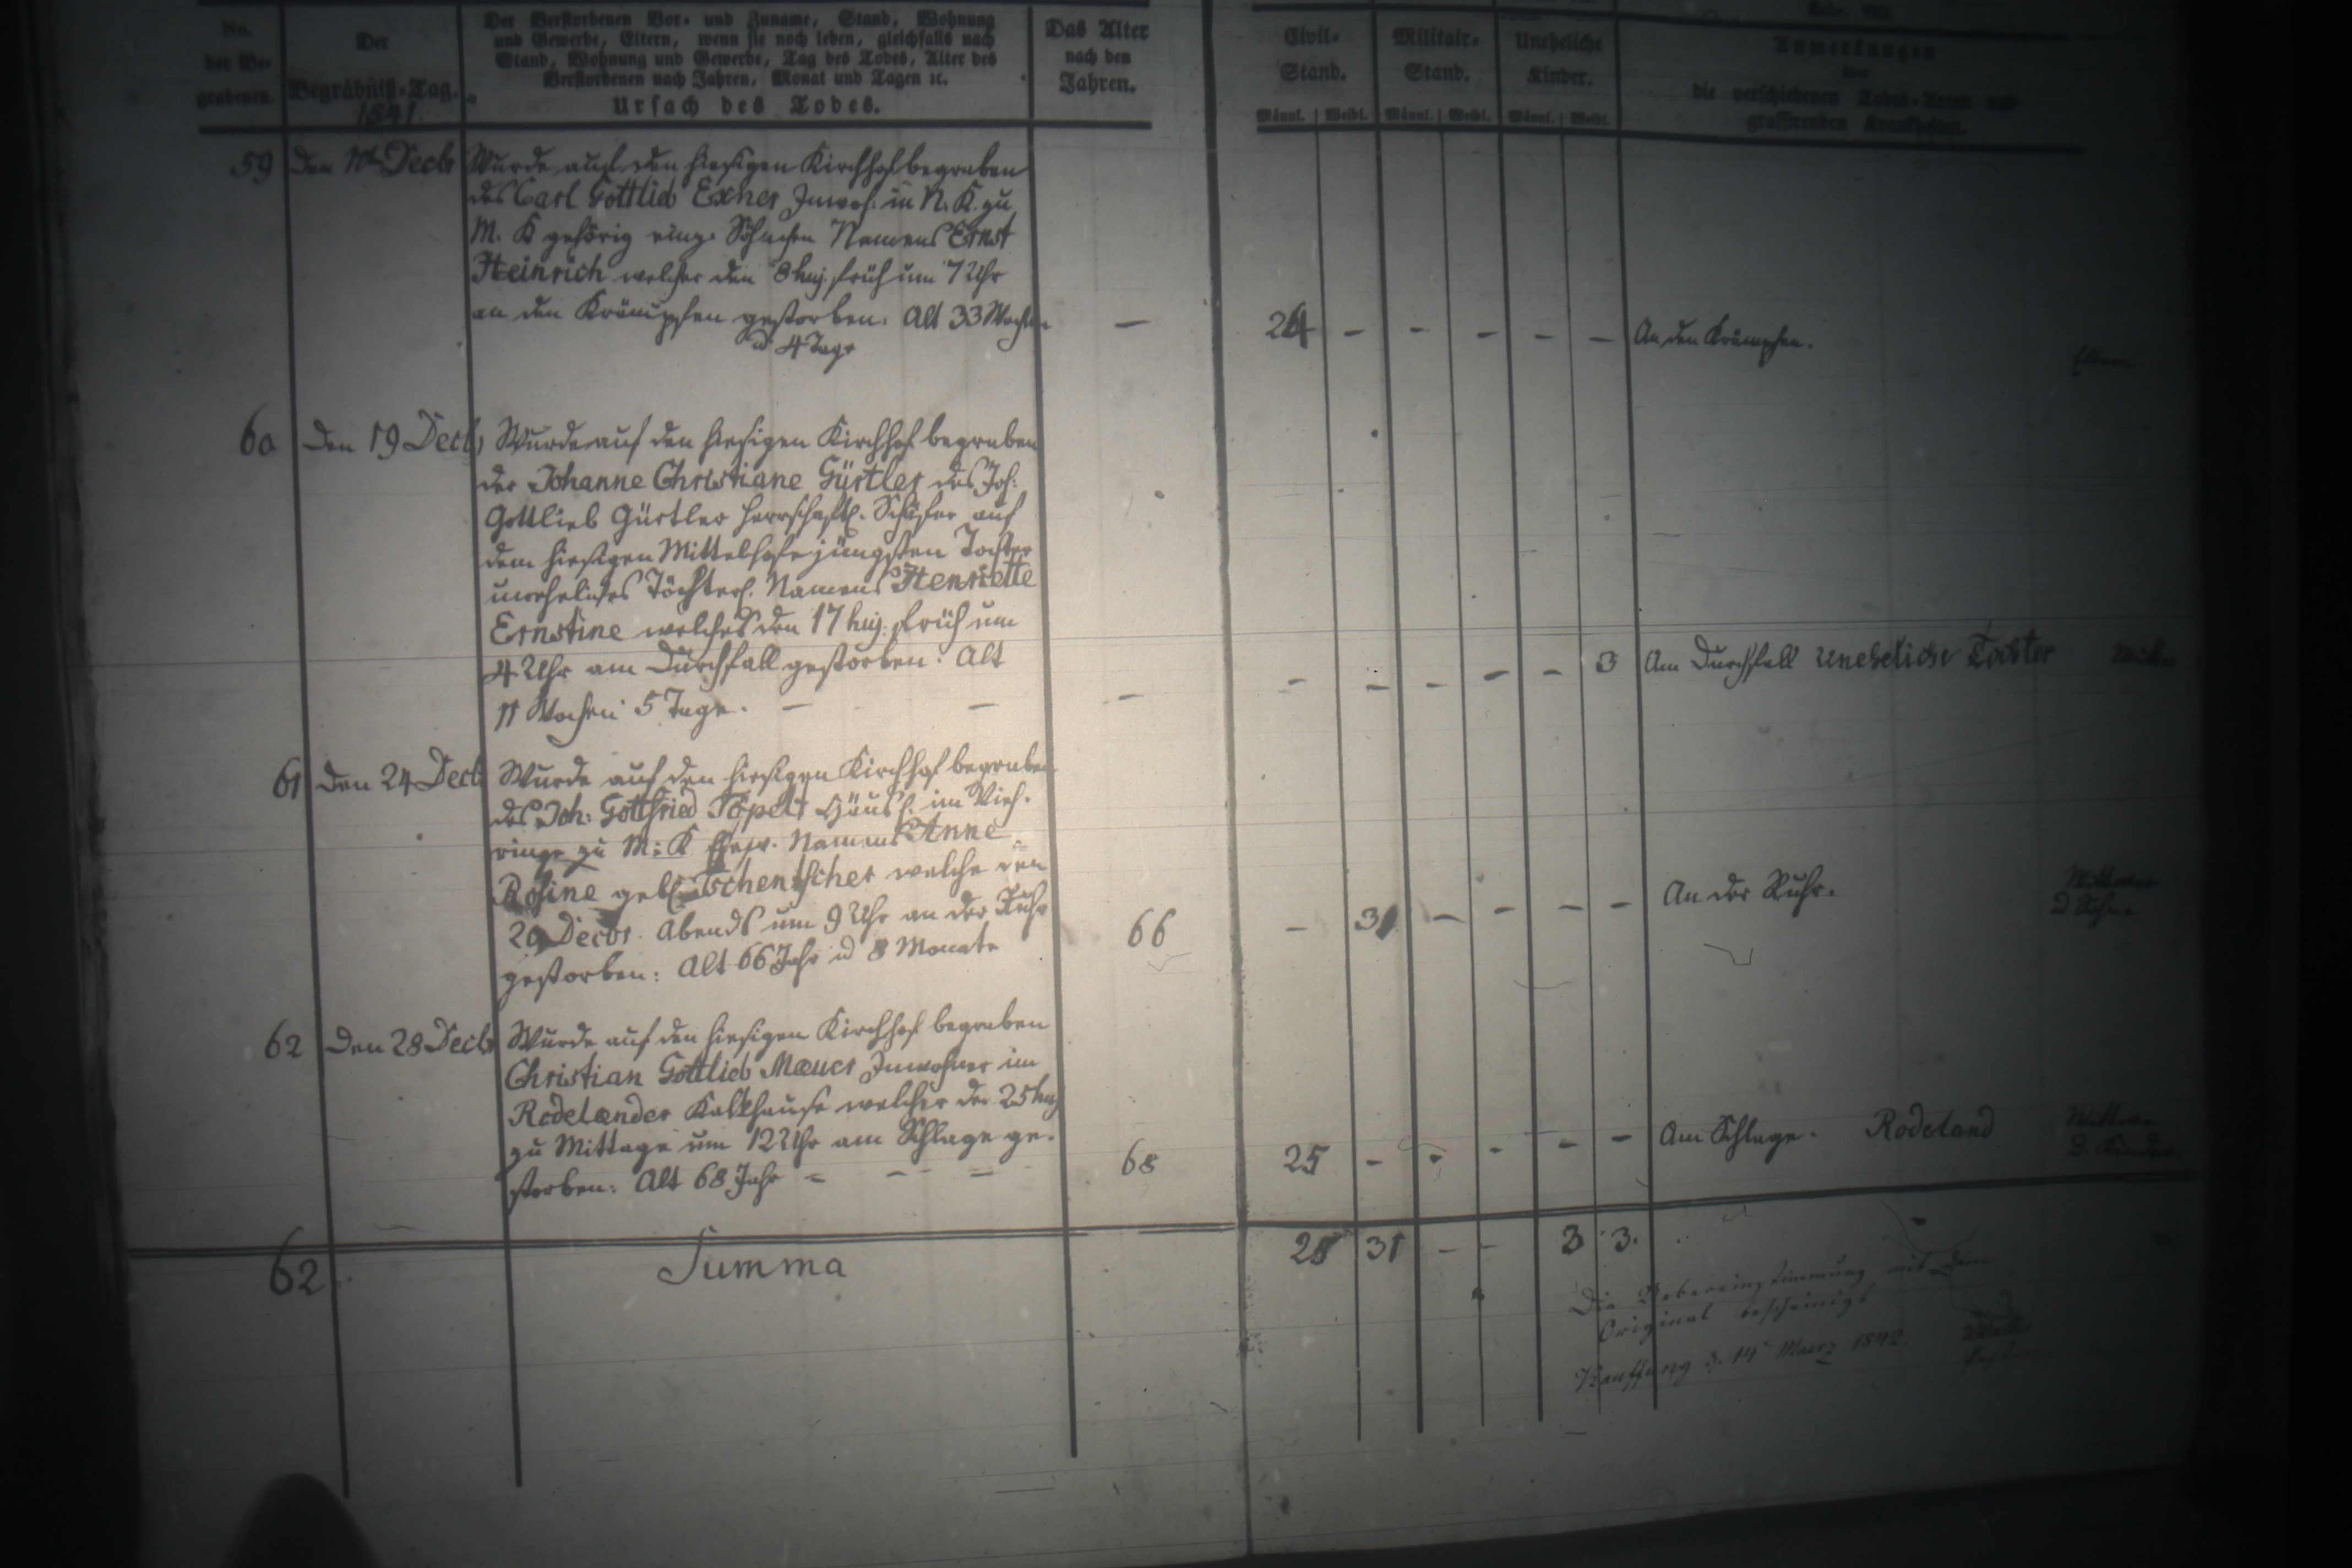 No.
der Be-
grabenen.
Der
Begräbniß-Tag.
1841
Der Verstorbenen Vor- und Zuname, Stand, Wohnung
und Gewerbe, Eltern, wenn sie noch leben, gleichfalls nach
Stand, Wohnung und Gewerbe, Tag des Todes, Alter des
Verstorbenen nach Jahren, Monat und Tagen ꝛc.
Ursach des Todes.
Das Alter
nach den
Jahren.
Civil-
Stand.
Militair-
Stand.
Uneheliche
Kinder.
Anmerkungen
über
die verschiedenen Todes-Arten und
grassirenden Krankheiten.
Männl. Weibl. Männl. Weibl. Männl. Weibl.
59 Den Decbr Wurde auf den hiesigen Kirchhof begraben
des Carl Gottlieb Exner Inwoh. in N. K. zu
M. K gehörig einz. Söhnchen Namens Ernst
Heinrich welcher den 8 huj. früh um 7 Uhr
an den Krämpfen gestorben. Alt 33 Wochen
u 4 Tage
— 24 - - - - — An den Krämpfen.
60 Den 19 Decbr Wurde auf den hiesigen Kirchhof begraben
der Johanne Christiane Gürtler des Joh:
Gottlieb Gürtler herrschaftl. Schäfer auf
dem hiesigen Mittelhofe jüngsten Tochter
uneheliches Töchterl. Namens Henriette
Ernstine welches den 17 huj. früh um
4 Uhr am Durchfall gestorben: Alt
11 Wochen 5 Tage. — —
— - - - - - 3 Am Durchfall Uneheliche Tochter
61 Den 24 Decbr Wurde auf den hiesigen Kirchhof begraben
des Joh: Gottfried Töpelt Häusl. im Vieh-
ringe zu M: K Ehew. Namens Anne
Rosine geb. Tschentscher welche den
20 Decbr. Abends um 9 Uhr an der Ruhr
gestorben: Alt 66 Jahr u 8 Monate
66 - 31 - - - - An der Ruhr.
62 Den 28 Decbr Wurde auf den hiesigen Kirchhof begraben
Christian Gottlieb Mauer Inwohner im
Rodelander Kalkhause welcher den 25 huj
zu Mittage um 12 Uhr am Schlage ge-
storben: Alt 68 Jahr
68 25 - - - - - Am Schlage. Rodeland
62 Summa 25 31 - - 3 3.
Die Uebereinstimmung mit dem
Original bescheinigt
Kauffung d. 14 Maerz 1842